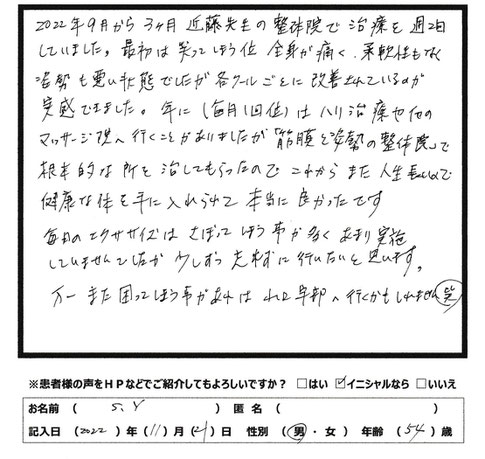 2022年9月から3ヶ月 近藤先生の整体院で治療を週2回
していました。最初は笑ってしまう位 全身が痛く、柔軟性もなく
姿勢も悪い状態でしたが各クールごとに改善されているのが
実感できました。年に(毎月1回位)はハリ治療や他の
マッサージ院へ行くことがありましたが「筋膜と姿勢の整体院」で
根本的な所を治してもらったので これからまた人生長いので
健康な体を手に入れられて 本当に良かったです
毎日のエクササイズはさぼってしまう事が多く あまり実施
していませんでしたが 少しずつ 気ままに行いたいと思います。
万一 また困ってしまう事があれば 行くかもしれません 笑
※患者様の声をHPなどでご紹介してもよろしいですか? □はい ☑イニシャルなら □いいえ
お名前 ( S.Y ) 匿名 ( )
記入日 (2022) 年 (11) 月 (21) 日 性別 (男・女) 年齢 (54) 歳